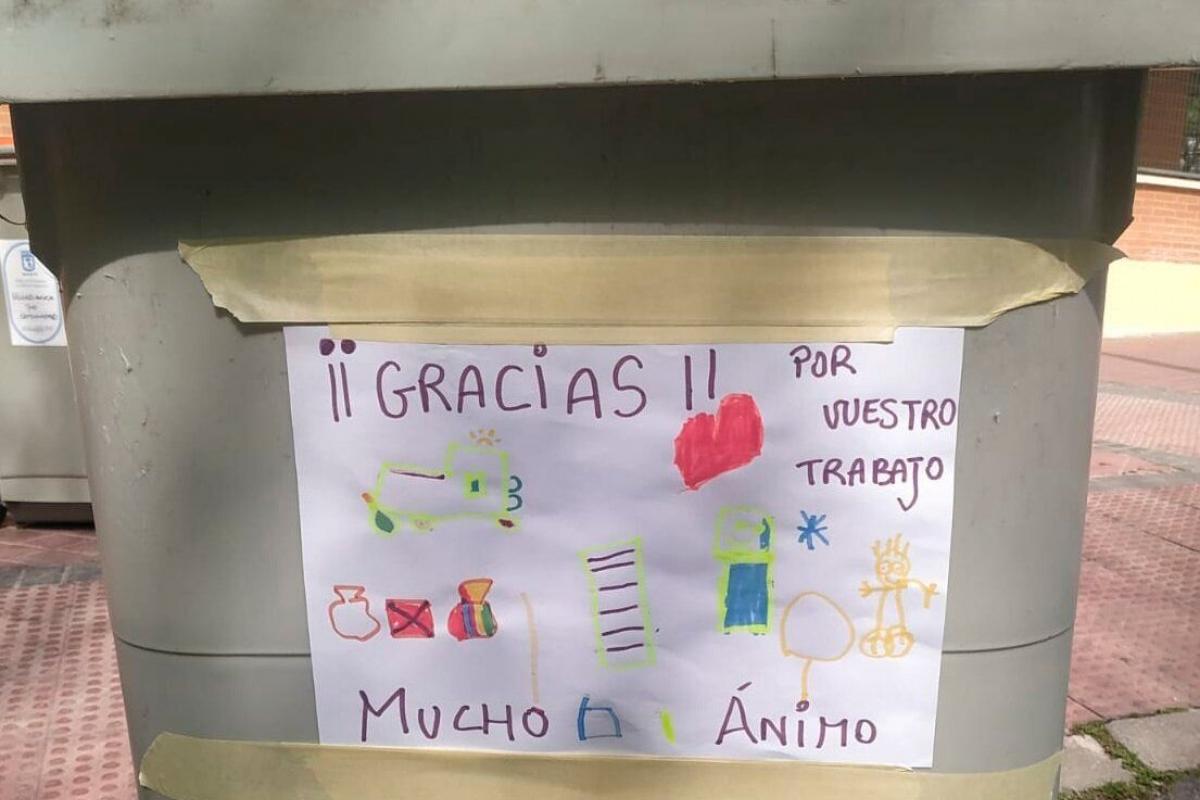 ¡¡GRACIAS!!
POR
VUESTRO
TRABAJO
MUCHO ÁNIMO